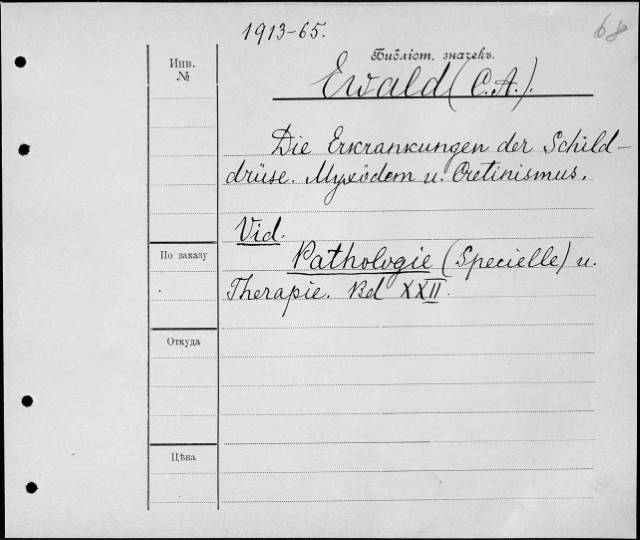 1913-65.
68
Инв.
№
Библіот. значекъ.
Ewald (C.A.).
Die Erkrankungen der Schild-
drüse. Myxödem u. Cretinismus.
Vid.
Pathologie (Specielle) u.
По заказу
Therapie. Bd XXII.
Откуда
Цѣна